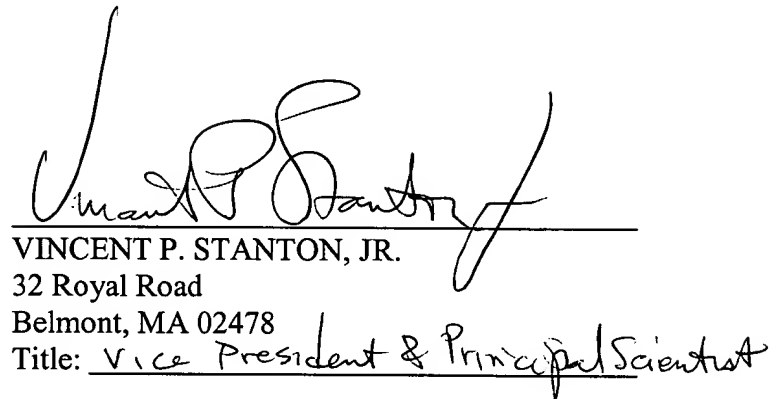 Vincent P Stanton Jr
VINCENT P. STANTON, JR.
32 Royal Road
Belmont, MA 02478
Title: Vice President & Principal Scientist